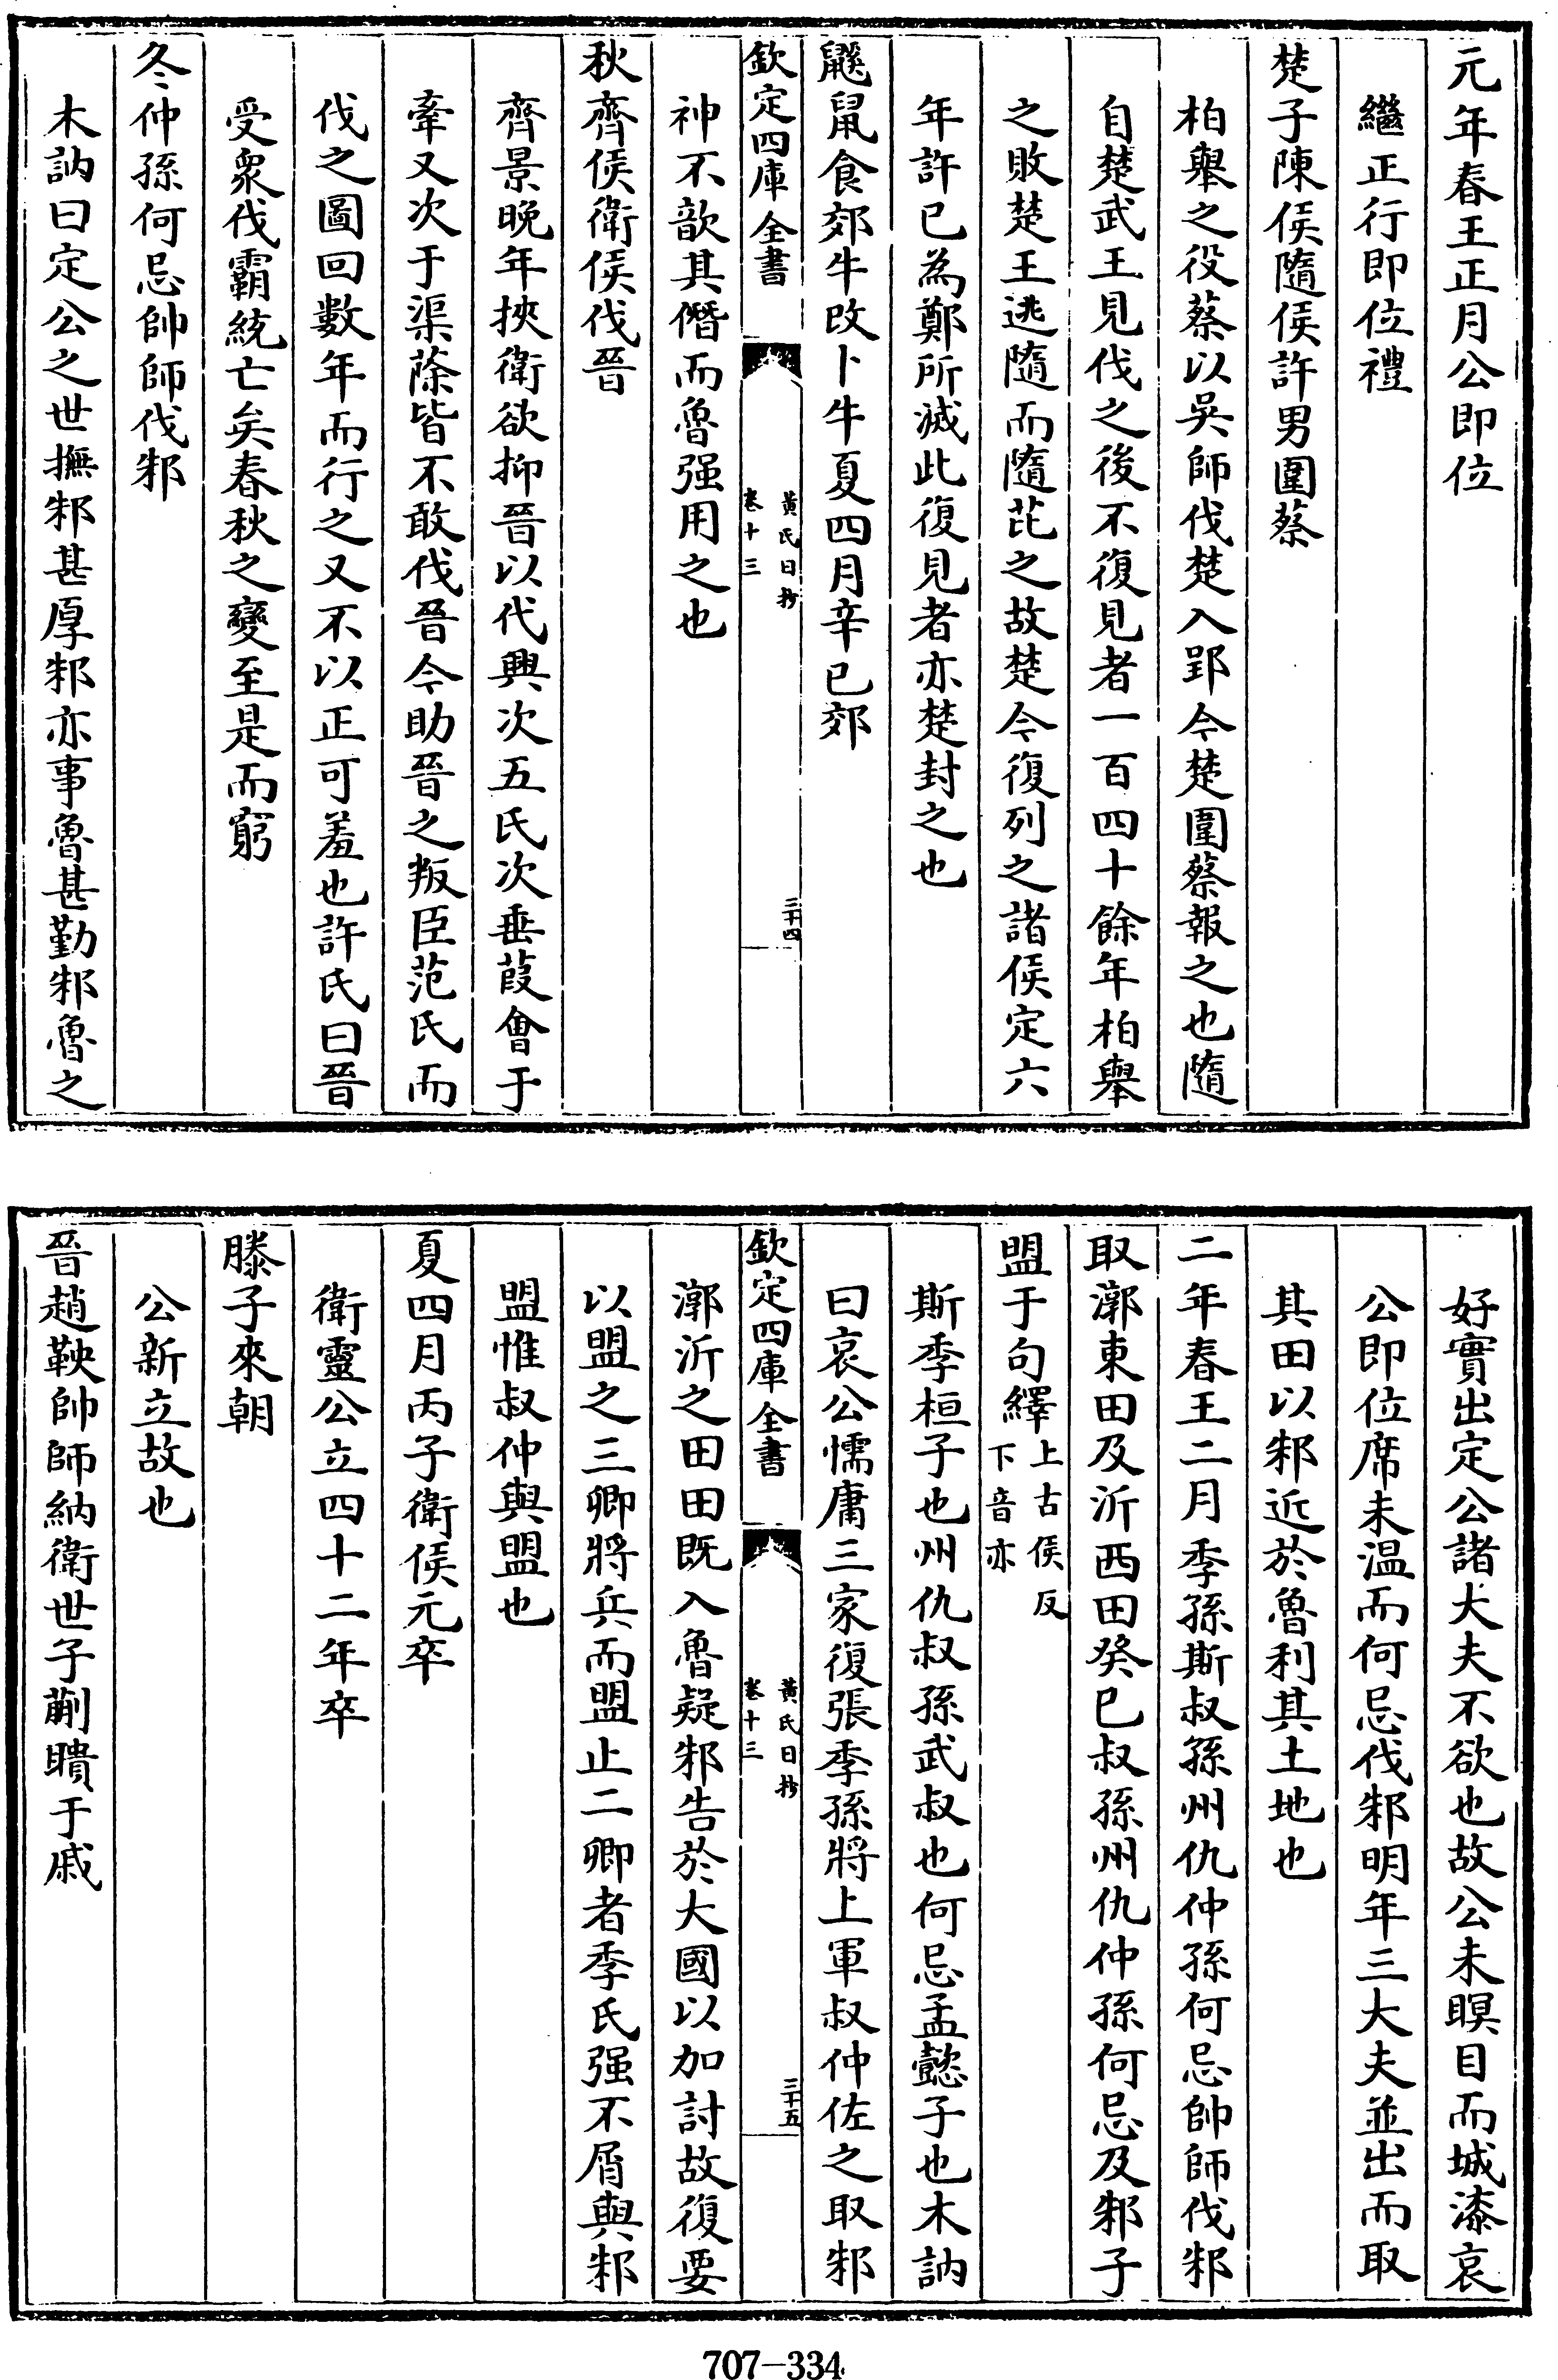 元年春王正月公即位
繼正行即位禮
楚子陳侯隨侯許男圍蔡
柏舉之役蔡以吳師伐楚入郢今楚圍蔡報之也隨
自楚武王見伐之後不復見者一百四十餘年柏舉
之敗楚王逃隨而隨芘之故楚今復列之諸侯定六
年許已為鄭所滅此復見者亦楚封之也
鼷鼠食郊牛改卜牛夏四月辛巳郊
欽定四庫全書
黃氏日抄
卷十三
三十四
神不歆其僭而魯强用之也
秋齊侯衛侯伐晉
齊景晚年挾衛欲抑晉以代興次五氏次垂葭會于
牽又次于渠蒢皆不敢伐晉今助晉之叛臣范氏而
伐之圖回數年而行之又不以正可羞也許氏曰晉
受衆伐霸統亡矣春秋之變至是而窮
冬仲孫何忌帥師伐邾
木訥曰定公之世撫邾甚厚邾亦事魯甚勤邾魯之
好實出定公諸大夫不欲也故公未瞑目而城漆哀
公即位席未温而何忌伐邾明年三大夫並出而取
其田以邾近於魯利其土地也
二年春王二月季孫斯叔孫州仇仲孫何忌帥師伐邾
取漷東田及沂西田癸巳叔孫州仇仲孫何忌及邾子
盟于句繹上古侯反下音亦
斯季桓子也州仇叔孫武叔也何忌孟懿子也木訥
曰哀公懦庸三家復張季孫將上軍叔仲佐之取邾
欽定四庫全書
黃氏日抄
卷十三
三十五
漷沂之田田既入魯疑邾告於大國以加討故復要
以盟之三卿將兵而盟止二卿者季氏强不屑與邾
盟惟叔仲與盟也
夏四月丙子衛侯元卒
衛靈公立四十二年卒
滕子來朝
公新立故也
晉趙鞅帥師納衛世子蒯聵于戚
707-334